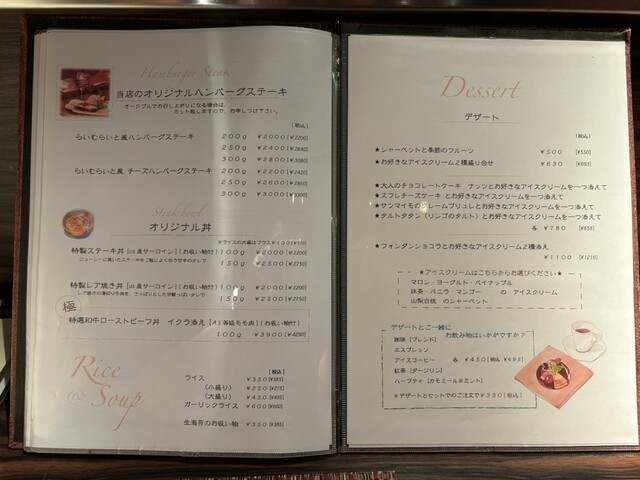 Hamburger Steak
当店のオリジナルハンバーグステーキ
オードブルでお召し上がりになる場合は、
カット致しますので、お申しつけ下さい。
(税込)
らいむらいと風ハンバーグステーキ 200g ¥2000 [¥2200]
250g ¥2400 [¥2640]
300g ¥2800 [¥3080]
らいむらいと風 チーズハンバーグステーキ 200g ¥2200 [¥2420]
250g ¥2600 [¥2860]
300g ¥3000 [¥3300]
Steak bowl
オリジナル丼
※ライスの大盛はプラス¥100 [¥110]
特製ステーキ丼 [us産サーロイン] (お吸い物付) 100g ¥2000 [¥2200]
150g ¥2500 [¥2750]
特製レア焼き丼 [us産サーロイン] (お吸い物付) 100g ¥2000 [¥2200]
150g ¥2500 [¥2750]
極
特選和牛ローストビーフ丼 イクラ添え [A5等級モモ肉] (お吸い物付)
100g ¥3900 [¥4290]
Rice
@ Soup
(税込)
ライス ¥350 [¥385]
(小盛り) ¥250 [¥275]
(大盛り) ¥450 [¥495]
ガーリックライス ¥600 [¥660]
生海苔のお吸い物 ¥350 [¥385]
Dessert
デザート
(税込)
★シャーベットと季節のフルーツ ¥500 [¥550]
★お好きなアイスクリーム2種盛り合せ ¥630 [¥693]
★大人のチョコレートケーキ ナッツとお好きなアイスクリームを一つ添えて
★スフレチーズケーキ とお好きなアイスクリームを一つ添えて
★サツマイモのクレームブリュレとお好きなアイスクリームを一つ添えて
★タルトタタン(リンゴのタルト)とお好きなアイスクリームを一つ添えて
各 ¥780 [¥858]
★フォンダンショコラとお好きなアイスクリーム2種添え
¥1100 [¥1210]
★アイスクリームはこちらからお選びください★
マロン・ヨーグルト・パイナップル
抹茶・バニラ・マンゴー の アイスクリーム
山梨白桃 のシャーベット
デザートとご一緒に
お飲み物はいかがですか?
珈琲 [ブレンド]
エスプレッソ
アイスコーヒー 各 ¥450 [税込 ¥495]
紅茶 [ダージリン]
ハーブティ [カモミール@ミント]
※デザートとセットでのご注文で¥330 [税込]